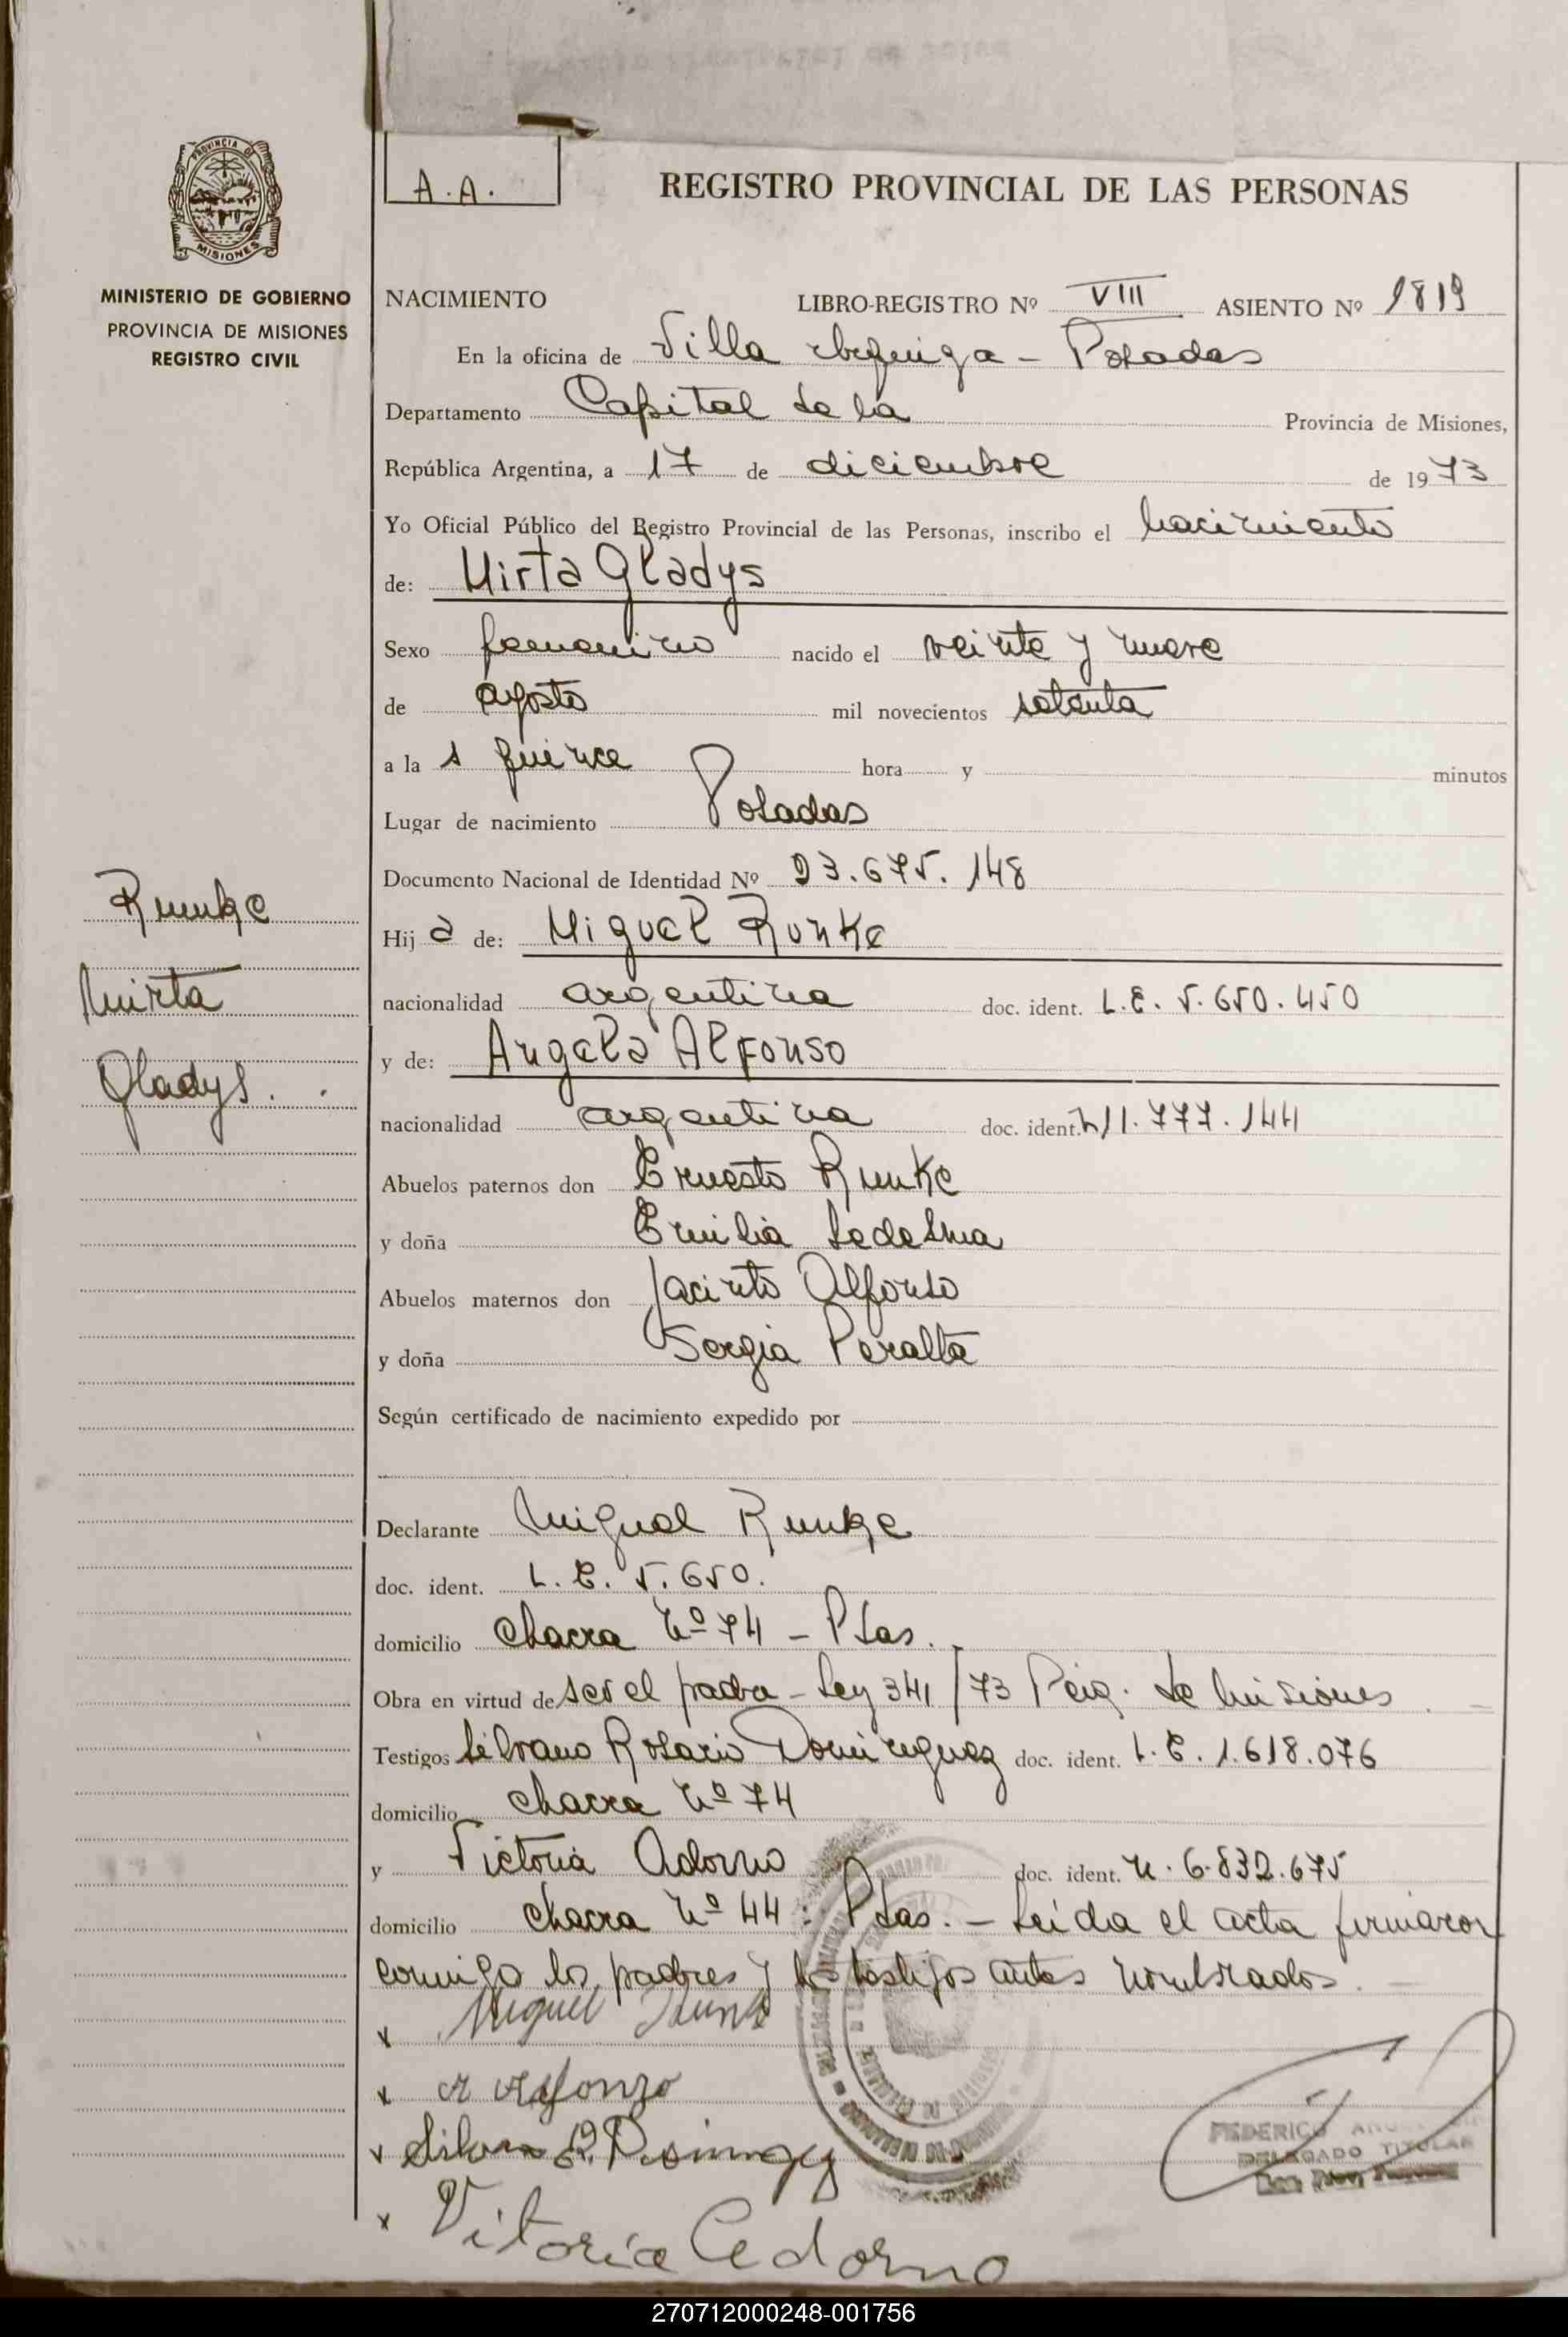 A.A.
REGISTRO PROVINCIAL DE LAS PERSONAS
PROVINCIA DE
MISIONES
MINISTERIO DE GOBIERNO
PROVINCIA DE MISIONES
REGISTRO CIVIL
NACIMIENTO LIBRO-REGISTRO Nº VIII ASIENTO Nº 1819
En la oficina de Villa Urquiza - Posadas
Departamento Capital de la Provincia de Misiones,
República Argentina, a 17 de diciembre de 1973
Yo Oficial Público del Registro Provincial de las Personas, inscribo el nacimiento
de: Mirta Gladys
Sexo femenino nacido el veinte y nueve
de agosto mil novecientos setenta
a la s quince hora y minutos
Lugar de nacimiento Posadas
Documento Nacional de Identidad Nº 23.675.148
Runke
Mirta
Gladys.
Hij a de: Miguel Runke
nacionalidad argentina doc. ident. L.E. 5.650.450
y de: Angela Alfonso
nacionalidad argentina doc. ident. n 11.777.144
Abuelos paternos don Ernesto Runke
y doña Emilia Ledesma
Abuelos maternos don Jacinto Alfonso
y doña Sergia Peralta
Según certificado de nacimiento expedido por
Declarante Miguel Runke
doc. ident. L.E. 5.650.
domicilio Chacra nº 74 - Pdas.
Obra en virtud de ser el padre - Ley 341/73 Pcia. de Misiones
Testigos Silvano Rosario Dominguez doc. ident. L.E. 1.618.076
domicilio Chacra nº 74
y Victoria Adorno doc. ident. n. 6.832.675
domicilio Chacra nº 44 - Pdas. - Leida el acta firmaron
conmigo los padres y los testigos antes nombrados.
x Miguel Runke
x A Alfonzo
x Silvano R. Dominguez
x Vitoria Adorno
FEDERICO
DELEGADO TITULAR
270712000248-001756